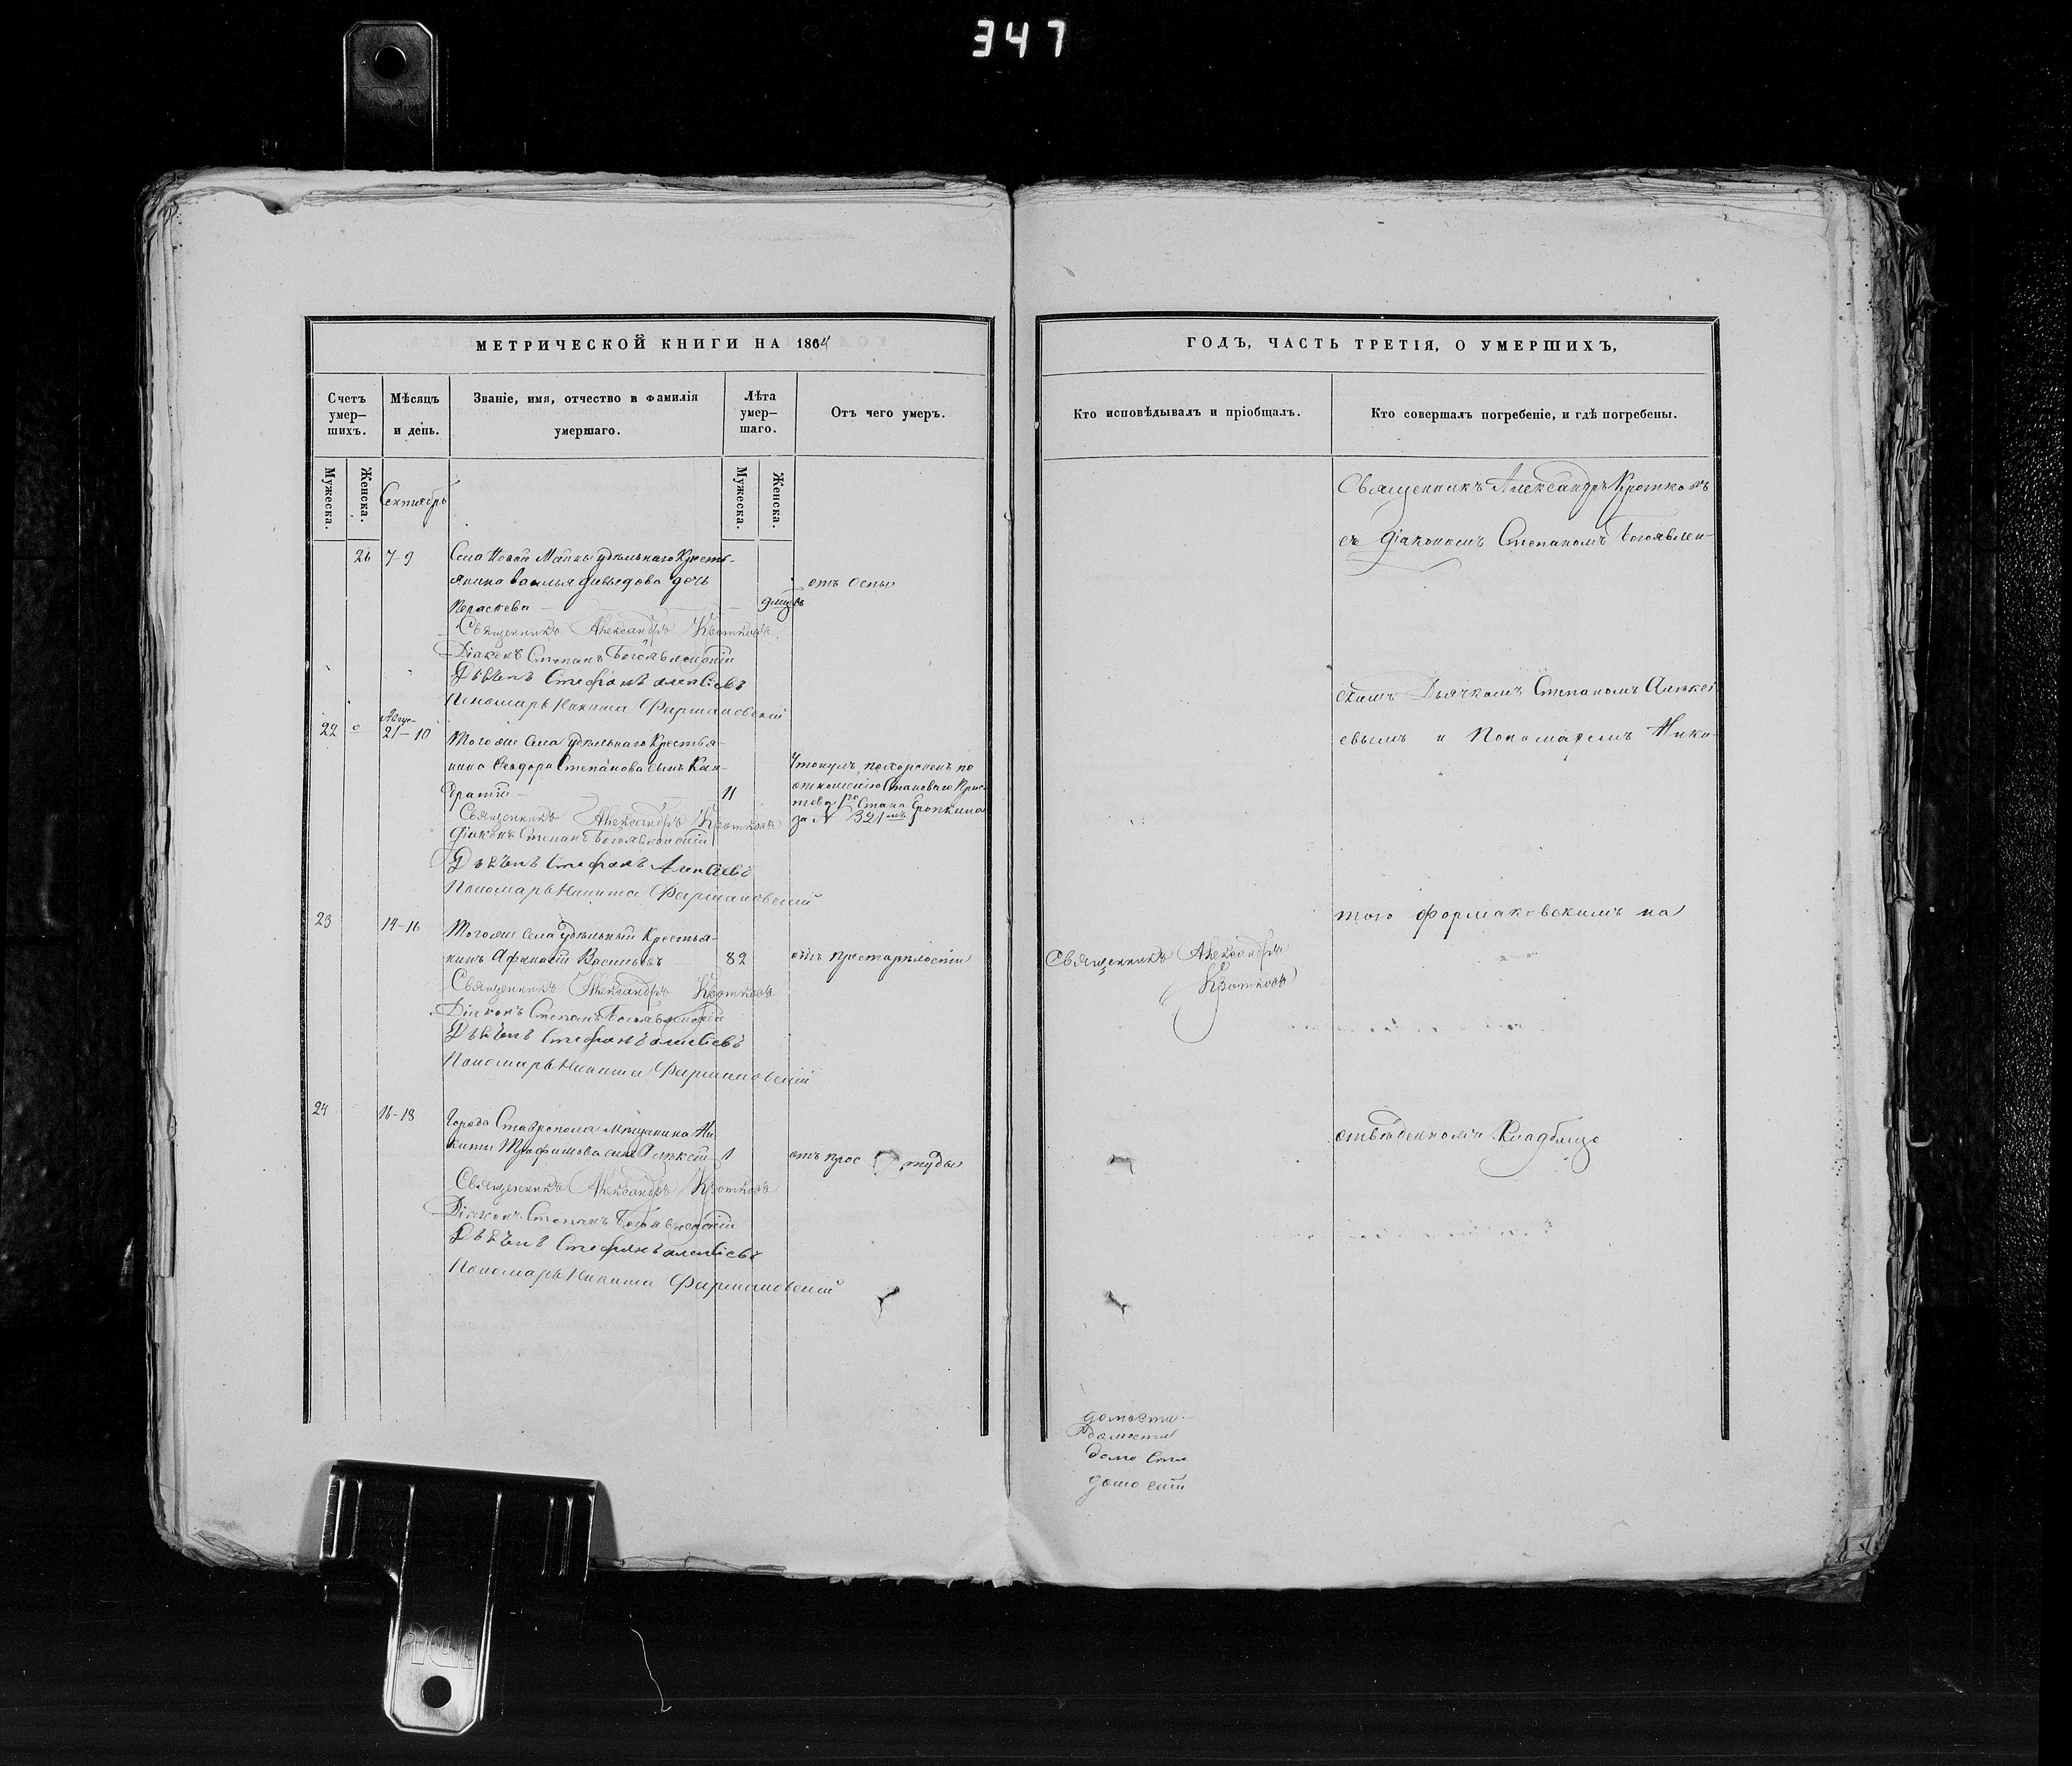 347
МЕТРИЧЕСКОЙ КНИГИ НА 1864
Счетъ умер–шихъ.
Мѣсяцъ и день.
Званіе, имя, отчество и фамилія умершаго.
Лѣта умер–шаго.
Отъ чего умеръ.
Мужеска.
Женска.
Мужеска.
Женска.
Сентябрь
26 7-9 Села Новой Майны удѣльнаго Кресть-
янина Василья Давыдова дочь
Параскева 9 мцовъ
отъ оспы
Священникъ Александръ Кротковъ
Діаконъ Степанъ Богоявленскій
Дьячекъ Стефанъ Алексѣевъ
Пономарь Никита Формаковскій
22 Авгус-
21-10 Того же села удѣльнаго Крестья-
нина Феодора Степанова сынъ Кон-
дратій 11
Утонулъ, похороненъ по
отношенію Становаго Прис-
тава 1го Стана Еропкина
за № 321мъ
Священникъ Александръ Кротковъ
Діаконъ Степанъ Богоявленскій
Дьячекъ Стефанъ Алексѣевъ
Пономарь Никита Формаковскій
23 14-16 Того же села удѣльный Крестья-
нинъ Афанасій Васильевъ 82 отъ престарѣлости
Священникъ Александръ Кротковъ
Діаконъ Степанъ Богоявленскій
Дьячекъ Стефанъ Алексѣевъ
Пономарь Никита Формаковскій
24 16-18 Города Ставрополя мѣщанина Ни-
киты Трофимова сынъ Алексѣй 1 отъ прос туды
Священникъ Александръ Кротковъ
Діаконъ Степанъ Богоявленскій
Дьячекъ Стефанъ Алексѣевъ
Пономарь Никита Формаковскій
ГОДЪ, ЧАСТЬ ТРЕТІЯ, О УМЕРШИХЪ,
Кто исповѣдывалъ и пріобщалъ.
Кто совершалъ погребеніе, и гдѣ погребены.
Священникъ Александръ Кротковъ
съ діакономъ Степаномъ Богоявлен-
скимъ Дьячкомъ Степаномъ Алексѣ
евымъ и Пономаремъ Ники-
тою Формаковскимъ на
Священникъ Александръ
Кротковъ
отведенномъ Кладбище